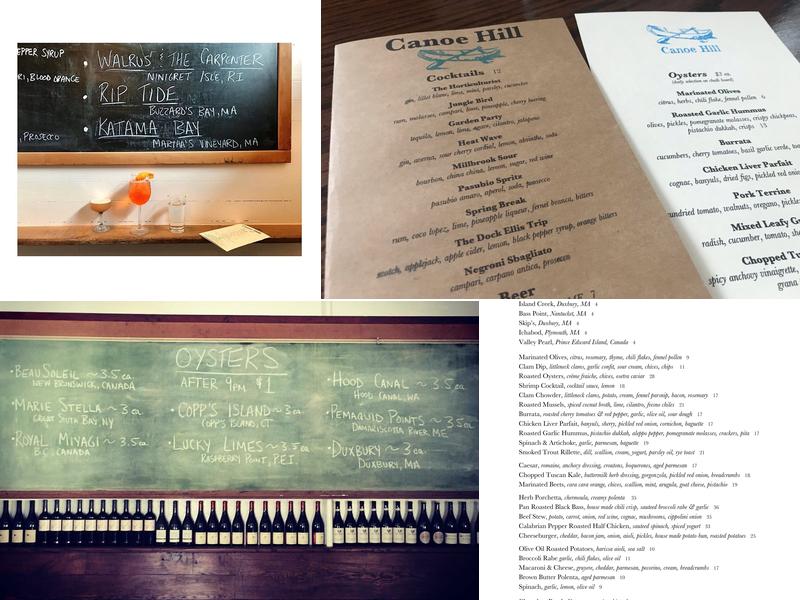 EPPER SYRUP
RI, BLOOD ORANGE
, PROSECCO
• WALRUS & THE CARPENTER
NINIGRET ISLE, RI
• RIP TIDE
BUZZARD'S BAY, MA
• KATAMA BAY
MARTHA'S VINEYARD, MA
Canoe Hill
Cocktails 12
The Horticulturist
gin, lillet blanc, lime, mint, parsley, cucumber
Jungle Bird
rum, molasses, campari, lime, pineapple, cherry herring
Garden Party
tequila, lemon, lime, agave, cilantro, jalapeno
Heat Wave
gin, averna, sour cherry cordial, lemon, absinthe, soda
Millbrook Sour
bourbon, china china, lemon, sugar, red wine
Pasubio Spritz
pasubio amaro, aperol, soda, prosecco
Spring Break
rum, coco lopez, lime, pineapple liqueur, fernet branca, bitters
The Dock Ellis Trip
scotch, applejack, apple cider, lemon, black pepper syrup, orange bitters
Negroni Sbagliato
campari, carpano antica, prosecco
Beer
7
Canoe Hill
Oysters $3 ea.
(daily selection on chalk board)
Marinated Olives
citrus, herbs, chili flake, fennel pollen 6
Roasted Garlic Hummus
olives, pickles, pomegranate molasses, crispy chickpeas,
pistachio dukkah, crisps 13
Burrata
cucumbers, cherry tomatoes, basil garlic verde, toa
Chicken Liver Parfait
cognac, banyuls, dried figs, pickled red onio
Pork Terrine
sundried tomato, walnuts, oregano, pickle
Mixed Leafy G
radish, cucumber, tomato, sh
Chopped Tu
spicy anchovy vinaigrette,
grana
OYSTERS
AFTER 9PM $1
• BEAUSOLEIL ~ 3.5 ea.
NEW BRUNSWICK, CANADA
• MARIE STELLA ~ 3 ea.
GREAT SOUTH BAY, NY
• ROYAL MIYAGI ~ 3 ea.
B.C. CANADA
• COPP'S ISLAND ~ 3 ea.
COPP'S ISLAND, CT
• LUCKY LIMES ~ 3.5 ea.
RASPBERRY POINT, P.E.I.
• HOOD CANAL ~ 3.5 ea.
HOOD CANAL, WA
• PEMAQUID POINTS ~ 3.5 ea.
DAMARISCOTTA RIVER, ME
• DUXBURY ~ 3 ea.
DUXBURY, MA
Island Creek, Duxbury, MA 4
Bass Point, Nantucket, MA 4
Skip's, Duxbury, MA 4
Ichabod, Plymouth, MA 4
Valley Pearl, Prince Edward Island, Canada 4
Marinated Olives, citrus, rosemary, thyme, chili flakes, fennel pollen 9
Clam Dip, littleneck clams, garlic confit, sour cream, chives, chips 11
Roasted Oysters, crème fraiche, chives, osetra caviar 28
Shrimp Cocktail, cocktail sauce, lemon 18
Clam Chowder, littleneck clams, potato, cream, fennel parsnip, bacon, rosemary 17
Roasted Mussels, spiced coconut broth, lime, cilantro, fresno chiles 21
Burrata, roasted cherry tomatoes & red pepper, garlic, olive oil, sour dough 17
Chicken Liver Parfait, banyuls, sherry, pickled red onion, cornichon, baguette 17
Roasted Garlic Hummus, pistachio dukkah, aleppo pepper, pomegranate molasses, crackers, pita 17
Spinach & Artichoke, garlic, parmesan, baguette 19
Smoked Trout Rillette, dill, scallion, cream, yogurt, parsley oil, rye toast 21
Caesar, romaine, anchovy dressing, croutons, boquerones, aged parmesan 17
Chopped Tuscan Kale, buttermilk herb dressing, gorgonzola, pickled red onion, breadcrumbs 18
Marinated Beets, cara cara orange, chives, scallion, mint, arugula, goat cheese, pistachio 19
Herb Porchetta, chermoula, creamy polenta 35
Pan Roasted Black Bass, house made chili crisp, sauteed broccoli rabe & garlic 36
Beef Stew, potato, carrot, onion, red wine, cognac, mushrooms, cippolini onion 35
Calabrian Pepper Roasted Half Chicken, sauteed spinach, spiced yogurt 33
Cheeseburger, cheddar, bacon jam, onion, aioli, pickles, house made potato bun, roasted potatoes 25
Olive Oil Roasted Potatoes, harissa aioli, sea salt 10
Broccoli Rabe garlic, chili flakes, olive oil 11
Macaroni & Cheese, gruyere, cheddar, parmesan, pecorino, cream, breadcrumbs 17
Brown Butter Polenta, aged parmesan 10
Spinach, garlic, lemon, olive oil 9